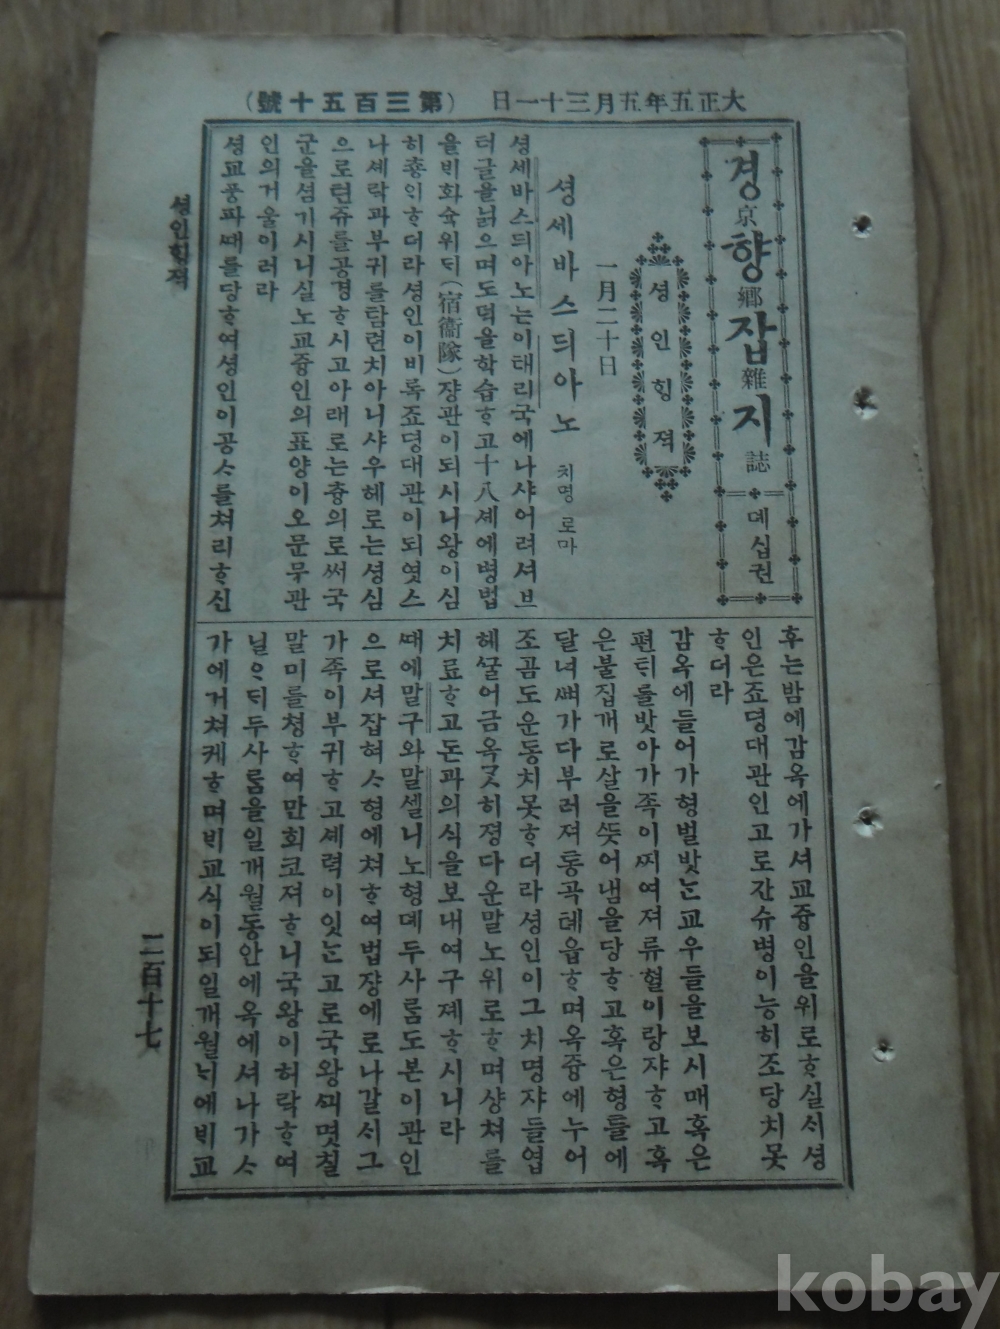 大正五年五月三十一日 (第三百五十號)
경京향鄕잡雜지誌 뎨십권
셩인ᄒᆡᆼ젹
一月二十日
셩세바스듸아노 치명 로마
셩세바스듸아노는이태리국에나샤어려셔브
터글을닑으며도덕을학습ᄒᆞ고十八셰에병법
을ᄇᆡ화슉위ᄃᆡ(宿衞隊)쟝관이되시니왕이심
히춍ᄋᆡᄒᆞ더라셩인이비록죠뎡대관이되엿스
나셰락과부귀를탐련치아니샤우헤로는셩심
으로텬쥬를공경ᄒᆞ시고아래로는츙의로써국
군을셤기시니실노교즁인의표양이오문무관
인의거울이러라
셩교풍파ᄯᅢ를당ᄒᆞ여셩인이공ᄉᆞ를쳐리ᄒᆞ신
후는밤에감옥에가셔교즁인을위로ᄒᆞ실ᄉᆡ셩
인은죠뎡대관인고로간슈병이능히조당치못
ᄒᆞ더라
감옥에들어가형벌밧는교우들을보시매혹은
편ᄐᆡ를밧아가족이ᄶᅵ여져류혈이랑쟈ᄒᆞ고혹
은불집개로살을ᄯᅳᆺ어냄을당ᄒᆞ고혹은형틀에
달녀ᄲᅧ가다부러져통곡톄읍ᄒᆞ며옥즁에누어
조곰도운동치못ᄒᆞ더라셩인이그치명쟈들엽
헤ᄭᅮᆯ어금옥ᄀᆞᆺ히졍다운말노위로ᄒᆞ며샹쳐를
치료ᄒᆞ고돈과의식을보내여구졔ᄒᆞ시니라
ᄯᅢ에말구와말셀니노형뎨두사ᄅᆞᆷ도본이관인
으로셔잡혀ᄉᆞ형에쳐ᄒᆞ여법쟝에로나갈ᄉᆡ그
가족이부귀ᄒᆞ고셰력이잇ᄂᆞᆫ고로국왕ᄭᅴ몃칠
말미를쳥ᄒᆞ여만회코져ᄒᆞ니국왕이허락ᄒᆞ여
닐ᄋᆞᄃᆡ두사ᄅᆞᆷ을일개월동안에옥에셔나가ᄉᆞ
가에거쳐케ᄒᆞ며ᄇᆡ교식이되일개월ᄂᆡ에ᄇᆡ교
셩인ᄒᆡᆼ젹
二百十七
kobay